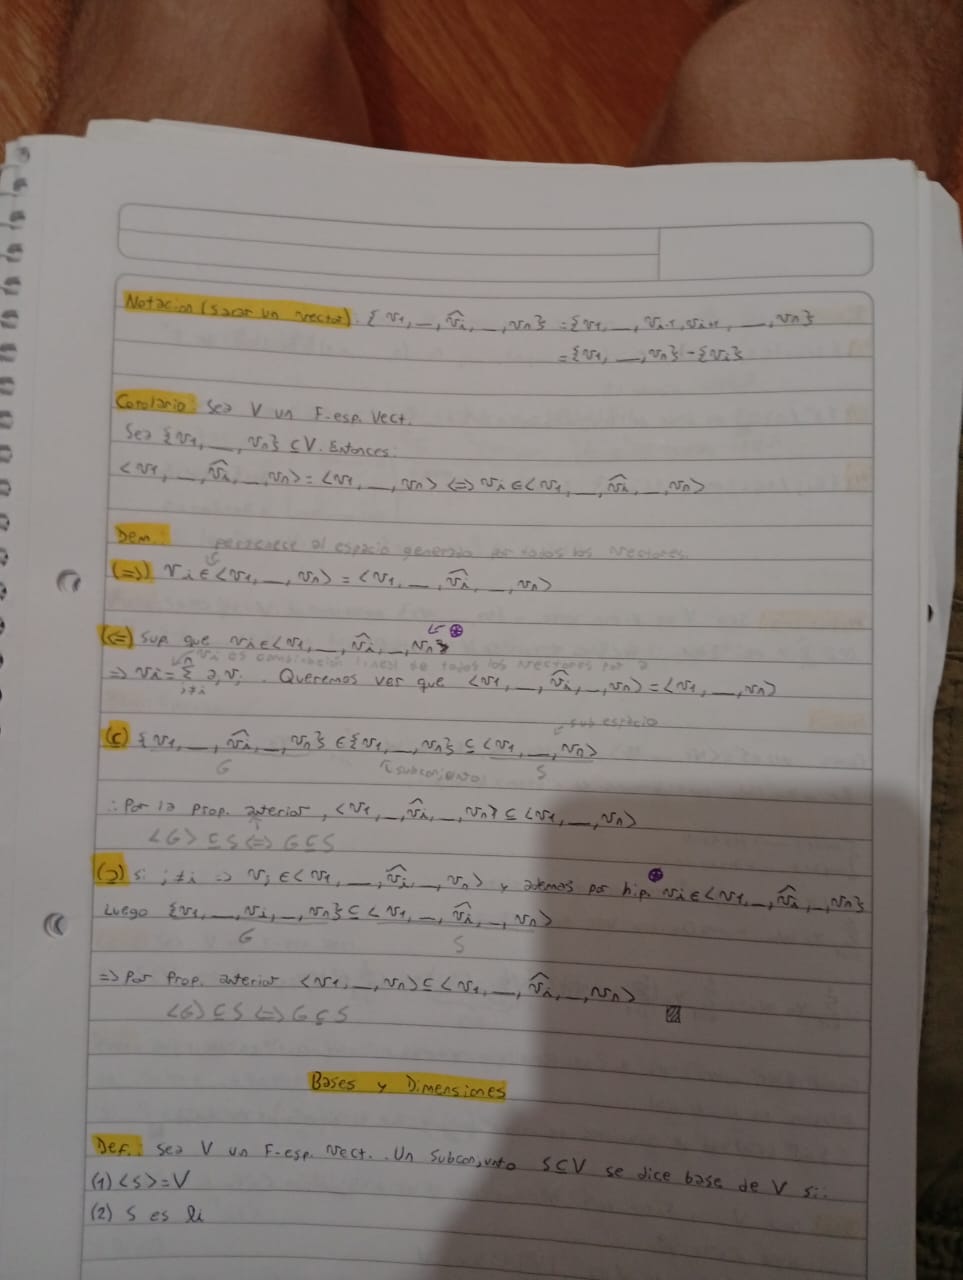 Notación (sacar un vector): {v1, _, v̂i, _, vn} = {v1, _, vi-1, vi+1, _, vn}
= {v1, _, vn} - {vi}
Corolario: Sea V un F-esp. Vect.
Sea {v1, _, vn} ⊆ V. Entonces:
<v1, _, v̂i, _, vn> = <v1, _, vn> <=> vi ∈ <v1, _, v̂i, _, vn>
Dem.: pertenece al espacio generado por todos los vectores.
(=>) vi ∈ <v1, _, vn> = <v1, _, v̂i, _, vn>
(<=) Sup. que vi ∈ <v1, _, v̂i, _, vn} ⊛
vi es combinación lineal de todos los vectores por a
=> vi = Σ^n_{j≠i} aj vj. Queremos ver que <v1, _, v̂i, _, vn> = <v1, _, vn>
sub espacio
(⊂) {v1, _, v̂i, _, vn} ∈ {v1, _, vn} ⊆ <v1, _, vn>
G subconjunto S
∴ Por la prop. anterior, <v1, _, v̂i, _, vn> ⊆ <v1, _, vn>
<G> ⊆ S <=> G ⊆ S
(⊃) Si j≠i => vj ∈ <v1, _, v̂i, _, vn> y además por hip. ⊛ vi ∈ <v1, _, v̂i, _, vn}
Luego {v1, _, vi, _, vn} ⊆ <v1, _, v̂i, _, vn>
G S
=> Por Prop. anterior <v1, _, vn> ⊆ <v1, _, v̂i, _, vn>
<G> ⊆ S <=> G ⊆ S
Bases y Dimensiones
Def.: Sea V un F-esp. Vect.. Un subconjunto S⊆V se dice base de V si:
(1) <S> = V
(2) S es li